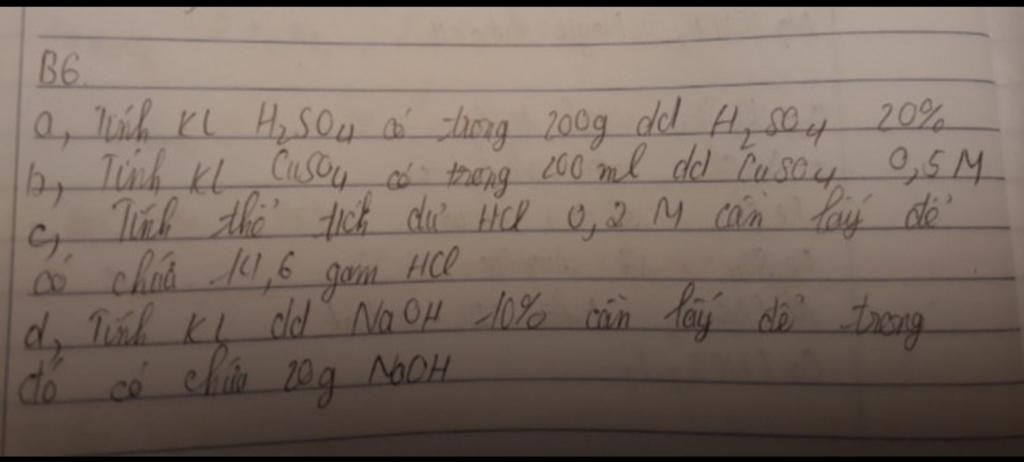 B6.
a, Tính KL H₂SO₄ có trong 200g dd H₂SO₄ 20%
b, Tính KL CuSO₄ có trong 200 ml dd CuSO₄ 0,5M
c, Tính thể tích HCl 0,2 M cần lấy để
có chứa 14,6 gam HCl
d, Tính KL dd NaOH 10% cần lấy để trong
đó có chứa 20g NaOH